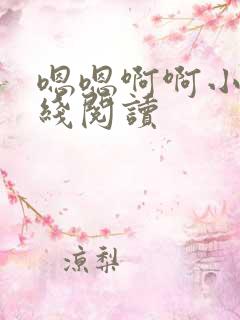 嗯嗯啊啊小
綫閱讀
凉梨